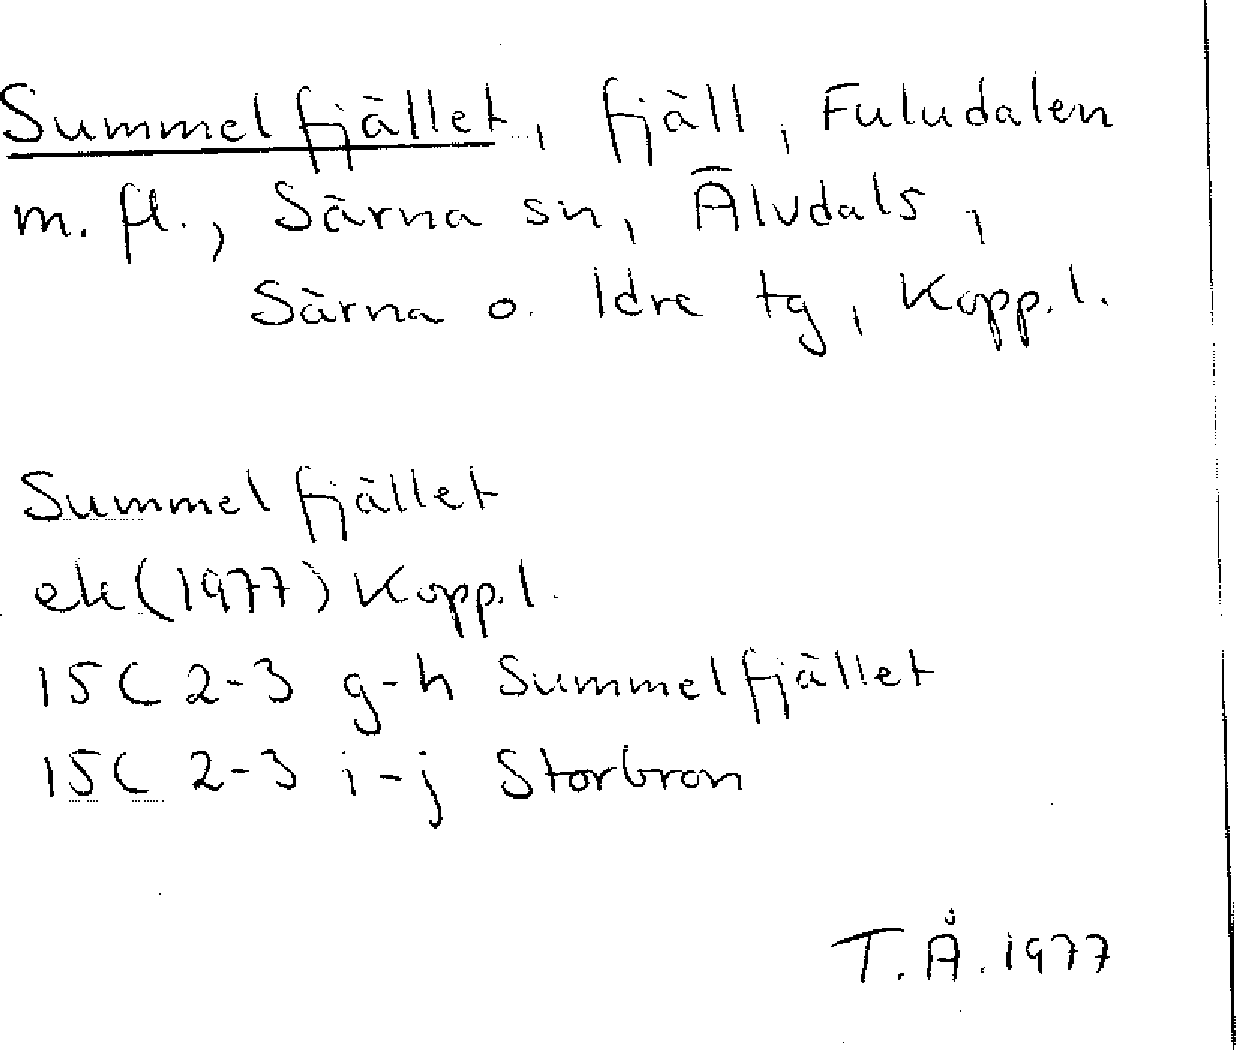 Summelfjället, fjäll, Fuludalen
m. fl., Särna sn, Älvdals,
Särna o. Idre tg, Kopp.l.
Summelfjället
ek (1977) Kopp.l.
15C 2-3 g-h Summelfjället
15C 2-3 i-j Storbron
T.Å. 1977